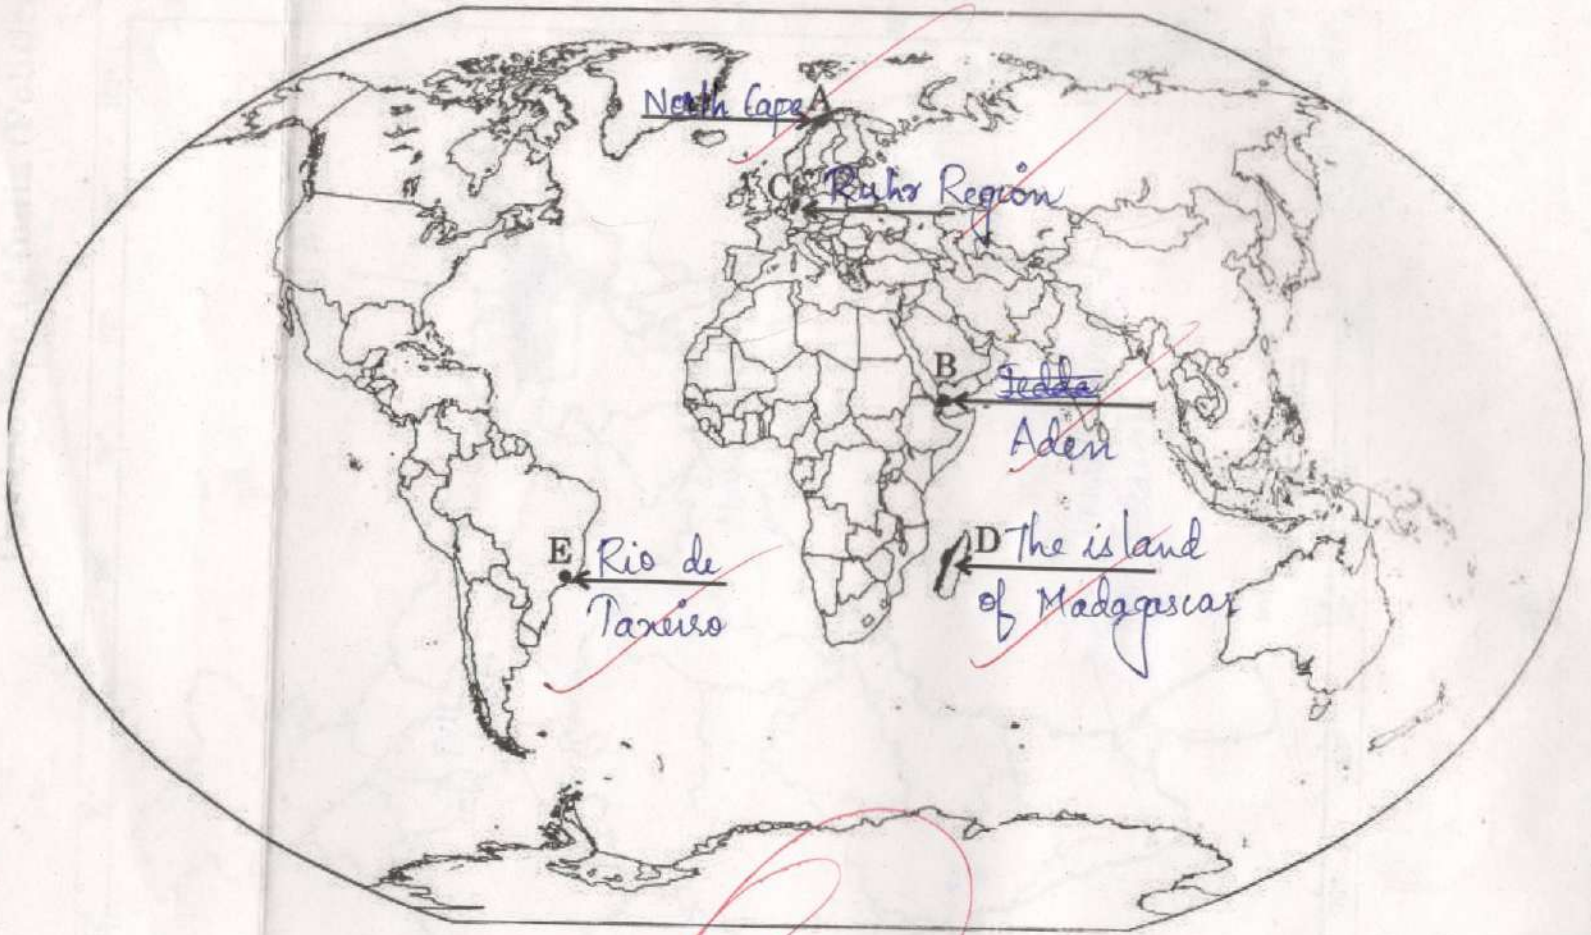 North Cape A
C Ruhr Region
B Jedda
Aden
D The island
of Madagascar
E Rio de
Janeiro